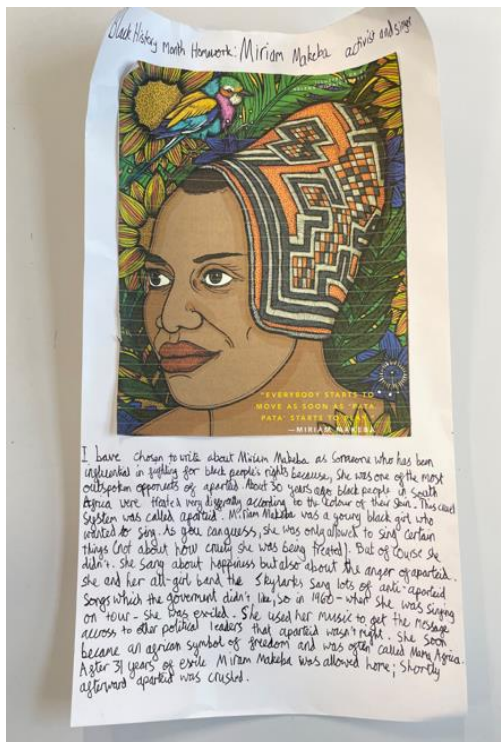 Black History Month Homework: Miriam Makeba activist and singer
"EVERYBODY STARTS TO
MOVE AS SOON AS 'PATA
PATA' STARTS TO PLAY."
—MIRIAM MAKEBA
I have chosen to write about Miriam Makeba as someone who has been
influential in fighting for black people's rights because, she was one of the most
outspoken opponents of apartied. About 30 years ago black people in South
Africa were treated very differently according to the colour of their skin. This cruel
system was called apartied. Miriam Makeba was a young black girl who
wanted to sing. As you can guess, she was only allowed to sing certain
things (not about how cruely she was being treated). But of course she
didn't. She sang about happiness but also about the anger of apartied.
she and her all-girl band the Skylarks sang lots of anti-apartied
songs which the goverment didn't like, so in 1960 - when she was singing
on tour - she was exiled. She used her music to get the message
across to other political leaders that apartied wasn't right. She soon
became an african symbol of freedom and was often called Mama Africa.
After 31 years of exile Miriam Makeba was allowed home; shortly
afterward apartied was crushed.